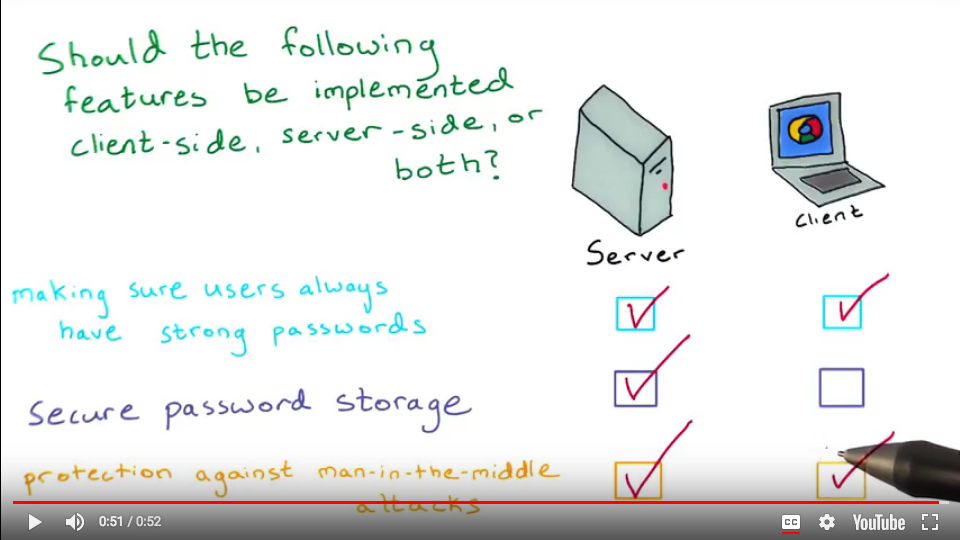 Should the following
features be implemented
client-side, server-side, or
both?
Server
Client
making sure users always
have strong passwords
Secure password storage
protection against man-in-the-middle
attacks
0:51 / 0:52
CC
YouTube